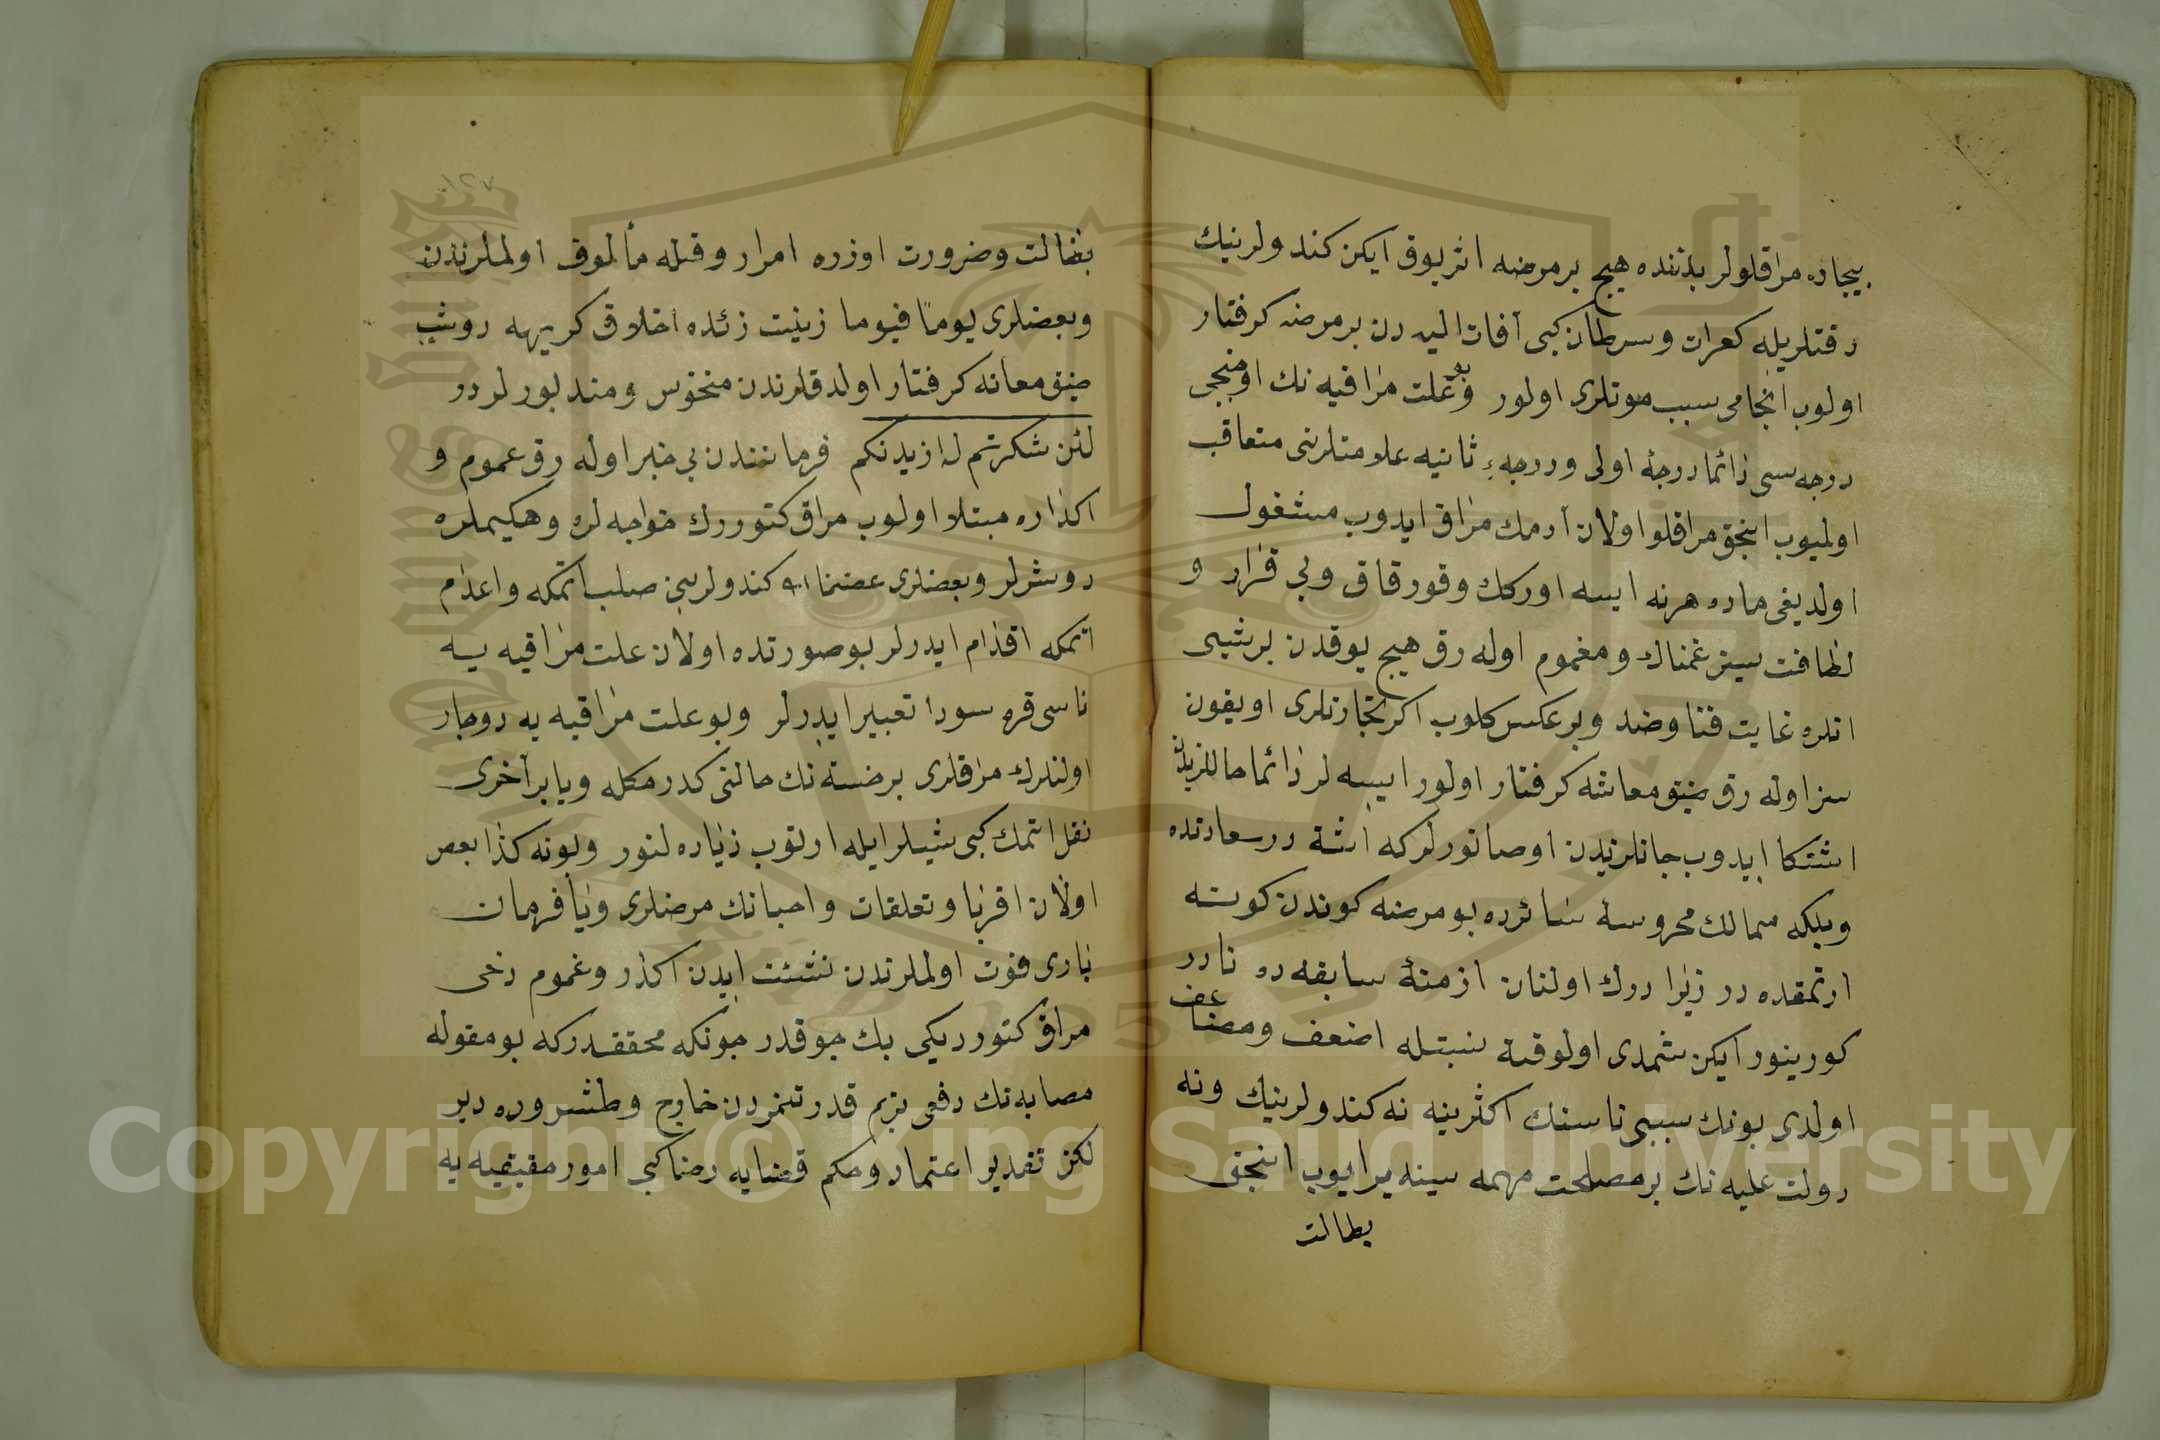 بيچاره مراقلولر بدننده هيچ بر مرضه اثر يوق ايكن كندولرينيك
دقتلريله كعرات وسرطان كبى آفات اليه دن بر مرضه كرفتار
اولوب انجامى سبب موتلرى اولور وبو علت مراقيه نك اوچنجى
درجه سى دائما درجهٔ اولى ودرجهءِ ثانيه علامتلرينى متعاقب
اولميوب انجق مراقلو اولان آدمك مراق ايدوب مشغول
اولديغى ماده هرنه ايسه اوركك وقورقاق وبى قرار و
لطافت سيز غمناك ومغموم اوله رق هيچ يوقدن برشيى
انلره غايت فنا وضد وبر عكس كلوب اكر تجارتلرى اويقون
سز اوله رق ضيق معاشه كرفتار اولور ايسه لر دائما حاللرندن
اشتكا ايدوب جانلرندن اوصانورلر كه اشته درسعادتده
وبلكه ممالك محروسهٔ سائرده بو مرضه كوندن كونه
ارتمقده در زيرا درك اولنان ازمنهٔ سابقه ده نادر
كورينور ايكن شمدى اولوقته نسبتله اضعف ومضاعف
اولدى بونك سببى ناسنك اكثرينه نه كندولرينيك ونه
دولت عليه نك بر مصلحت مهمه سينه يرايوب انجق
بطالت
١٢٧
بطالت وضرورت اوزره امرار وقتله مألوف اولملرندن
وبعضلرى يوماً فيوما زينت زئده اخلاق كريهه دوشيب
ضيق معاشه كرفتار اولدقلرندن منحوس ومندبورلردر
لئن شكرتم لازيدنكم فرماننندن بى خبر اوله رق عموم و
اكداره مبتلا اولوب مراق كتوررك خواجه لره وهكيملره
دوشرلر وبعضلرى عضنا كندولرينى صلب اتمكه واعدام
اتمكه اقدام ايدرلر بو صورتده اولان علت مراقيه يه
ناسى قره سودا تعبير ايدرلر وبو علت مراقيه يه دوچار
اولنلرك مراقلرى بر خسته نك حالنى كدرمكله ويا بر آخرى
نقل اتمك كبى شيلر ايله ارتوب زياده لنور وبونه كذا بعض
اولان اقربا وتعلقات واحبانك مرضلرى ويا فرمان
بارى فوت اولملرندن نشئت ايدن اكدر وغموم دخى
مراق كتورديكى پك چوقدر چونكه محققدركه بو مقوله
مصابه نك دفعى بزم قدرتمزدن خارج وطشروده دير
لكن تقدير اعتماد وحكم قضايه رضا كبى امور مقيقيه يه
Copyright © King Saud University